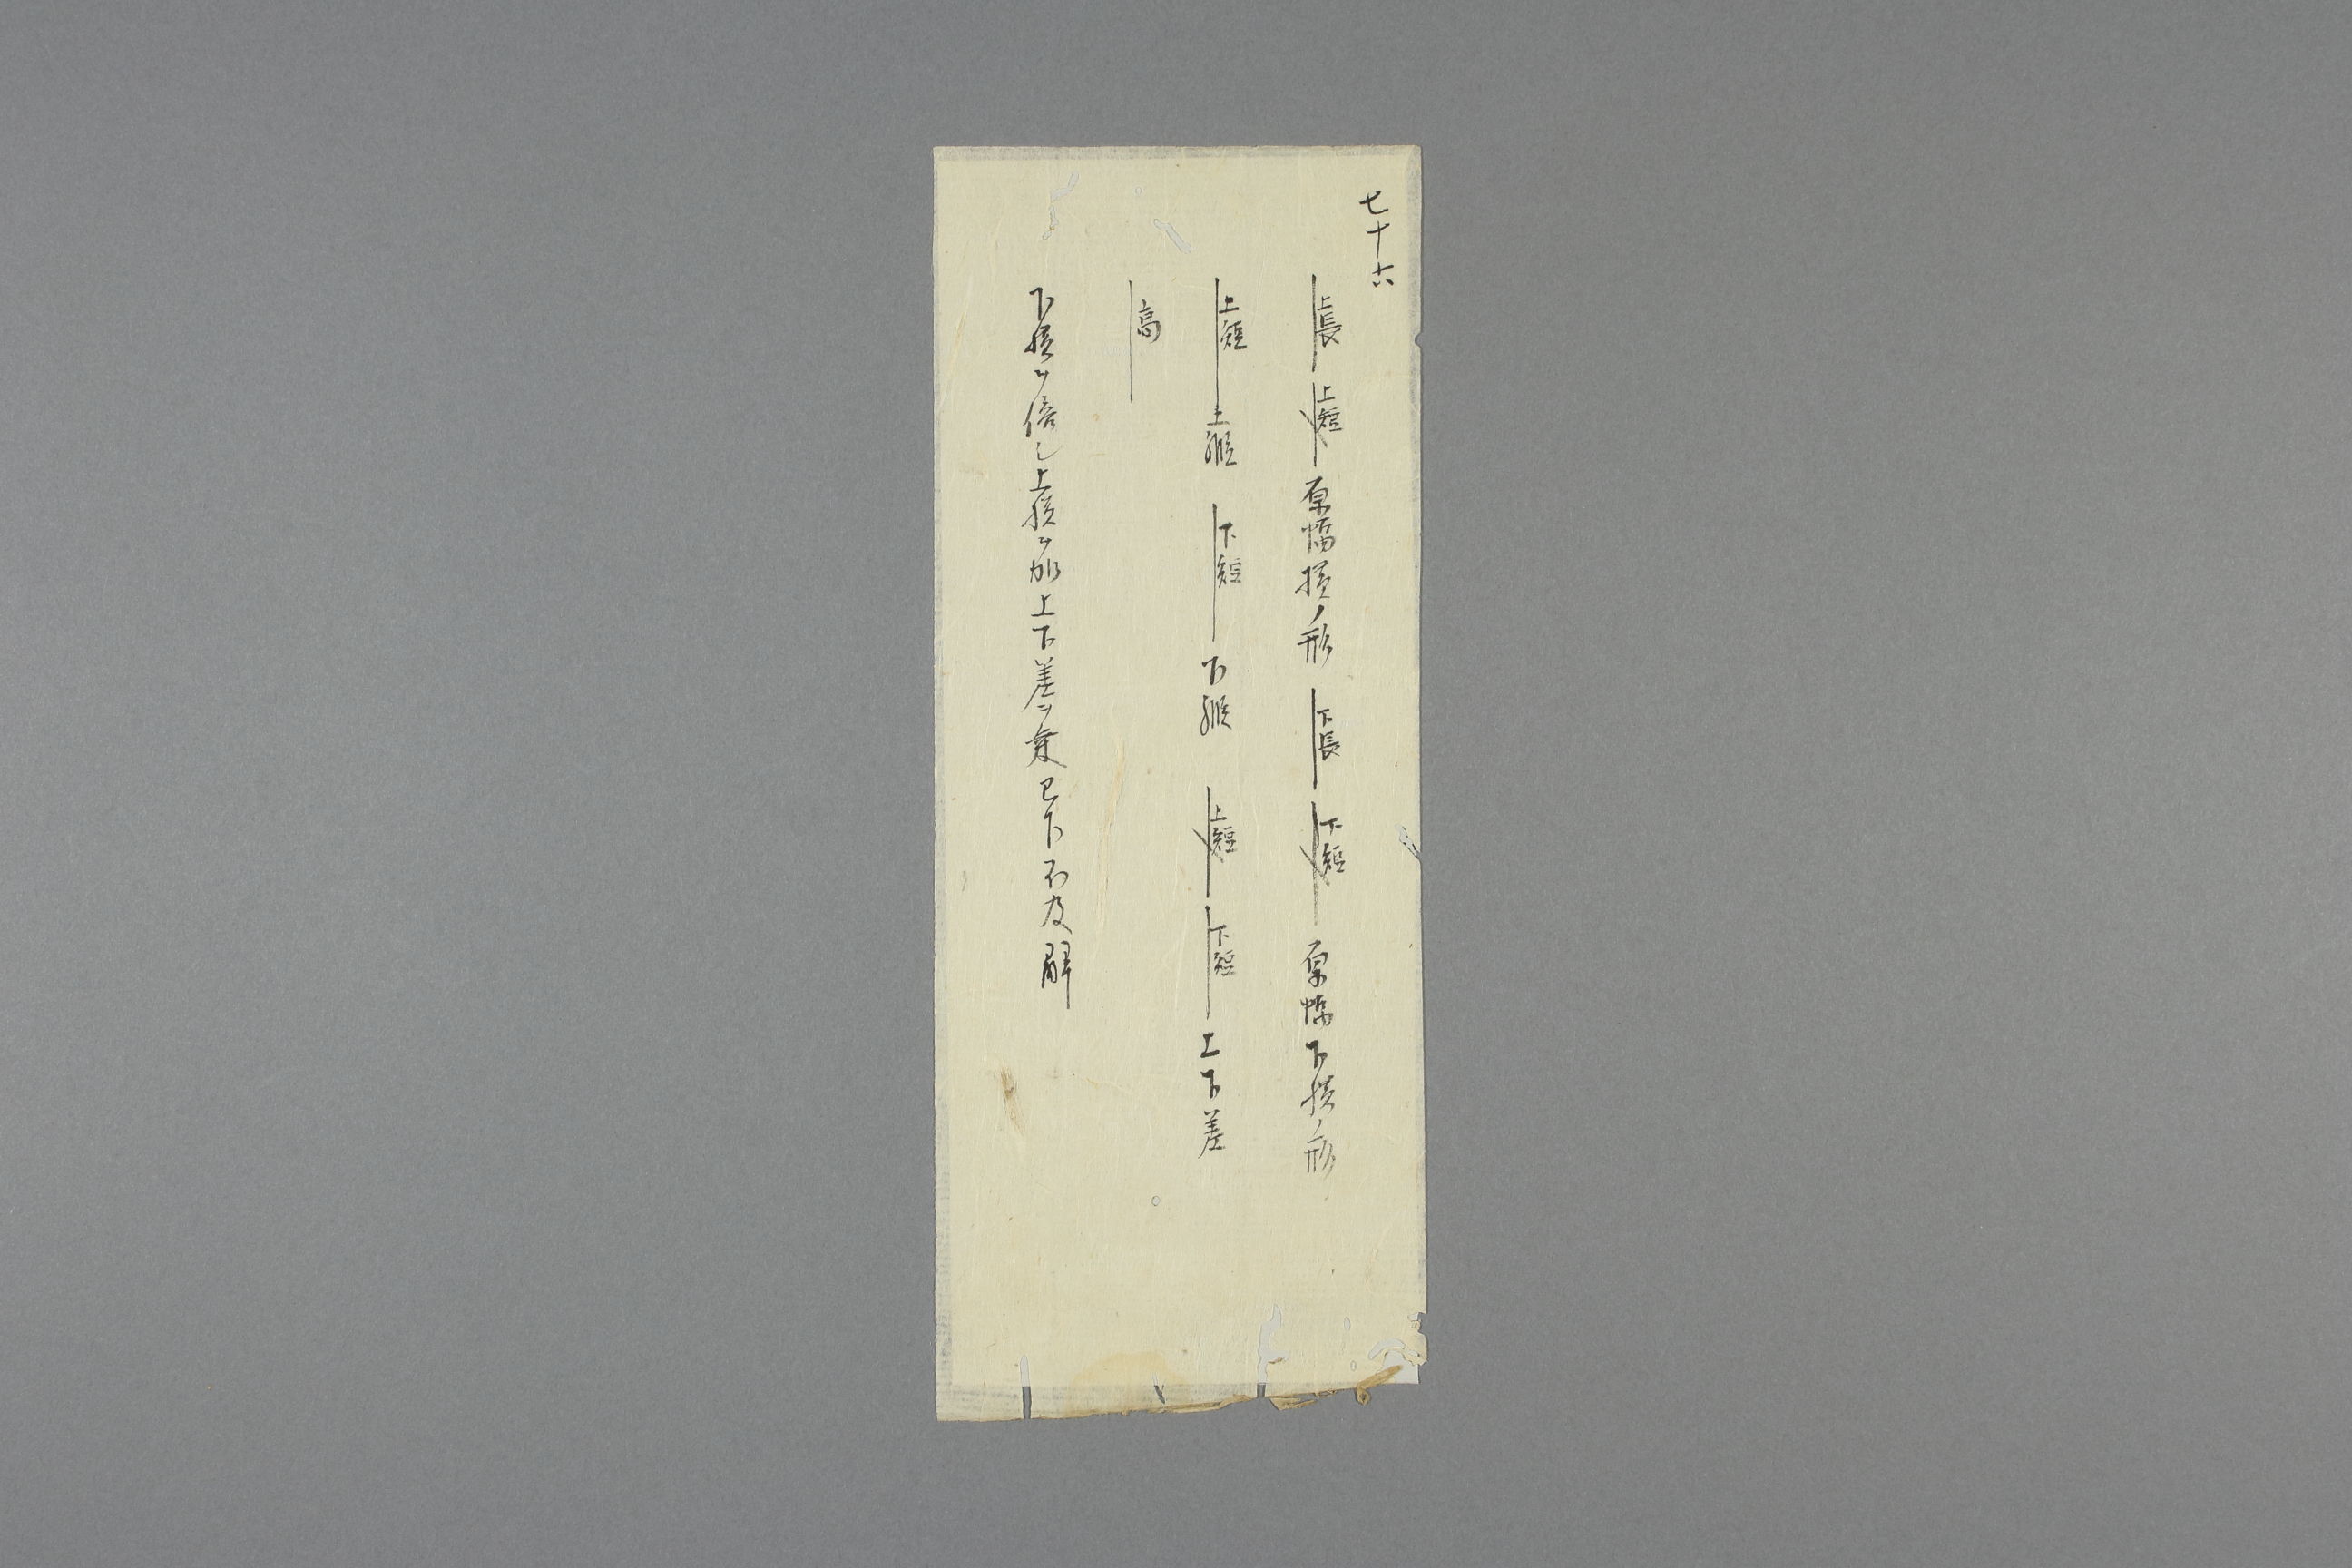 七十六
上長 上短 原幅横ノ形 下長 下短 原幅下横ノ形
上短 上縦 下短 下縦 上短 下短 上下差
高
下横ヲ倍シ上横ヲ加上下差ヲ乗已下不及解